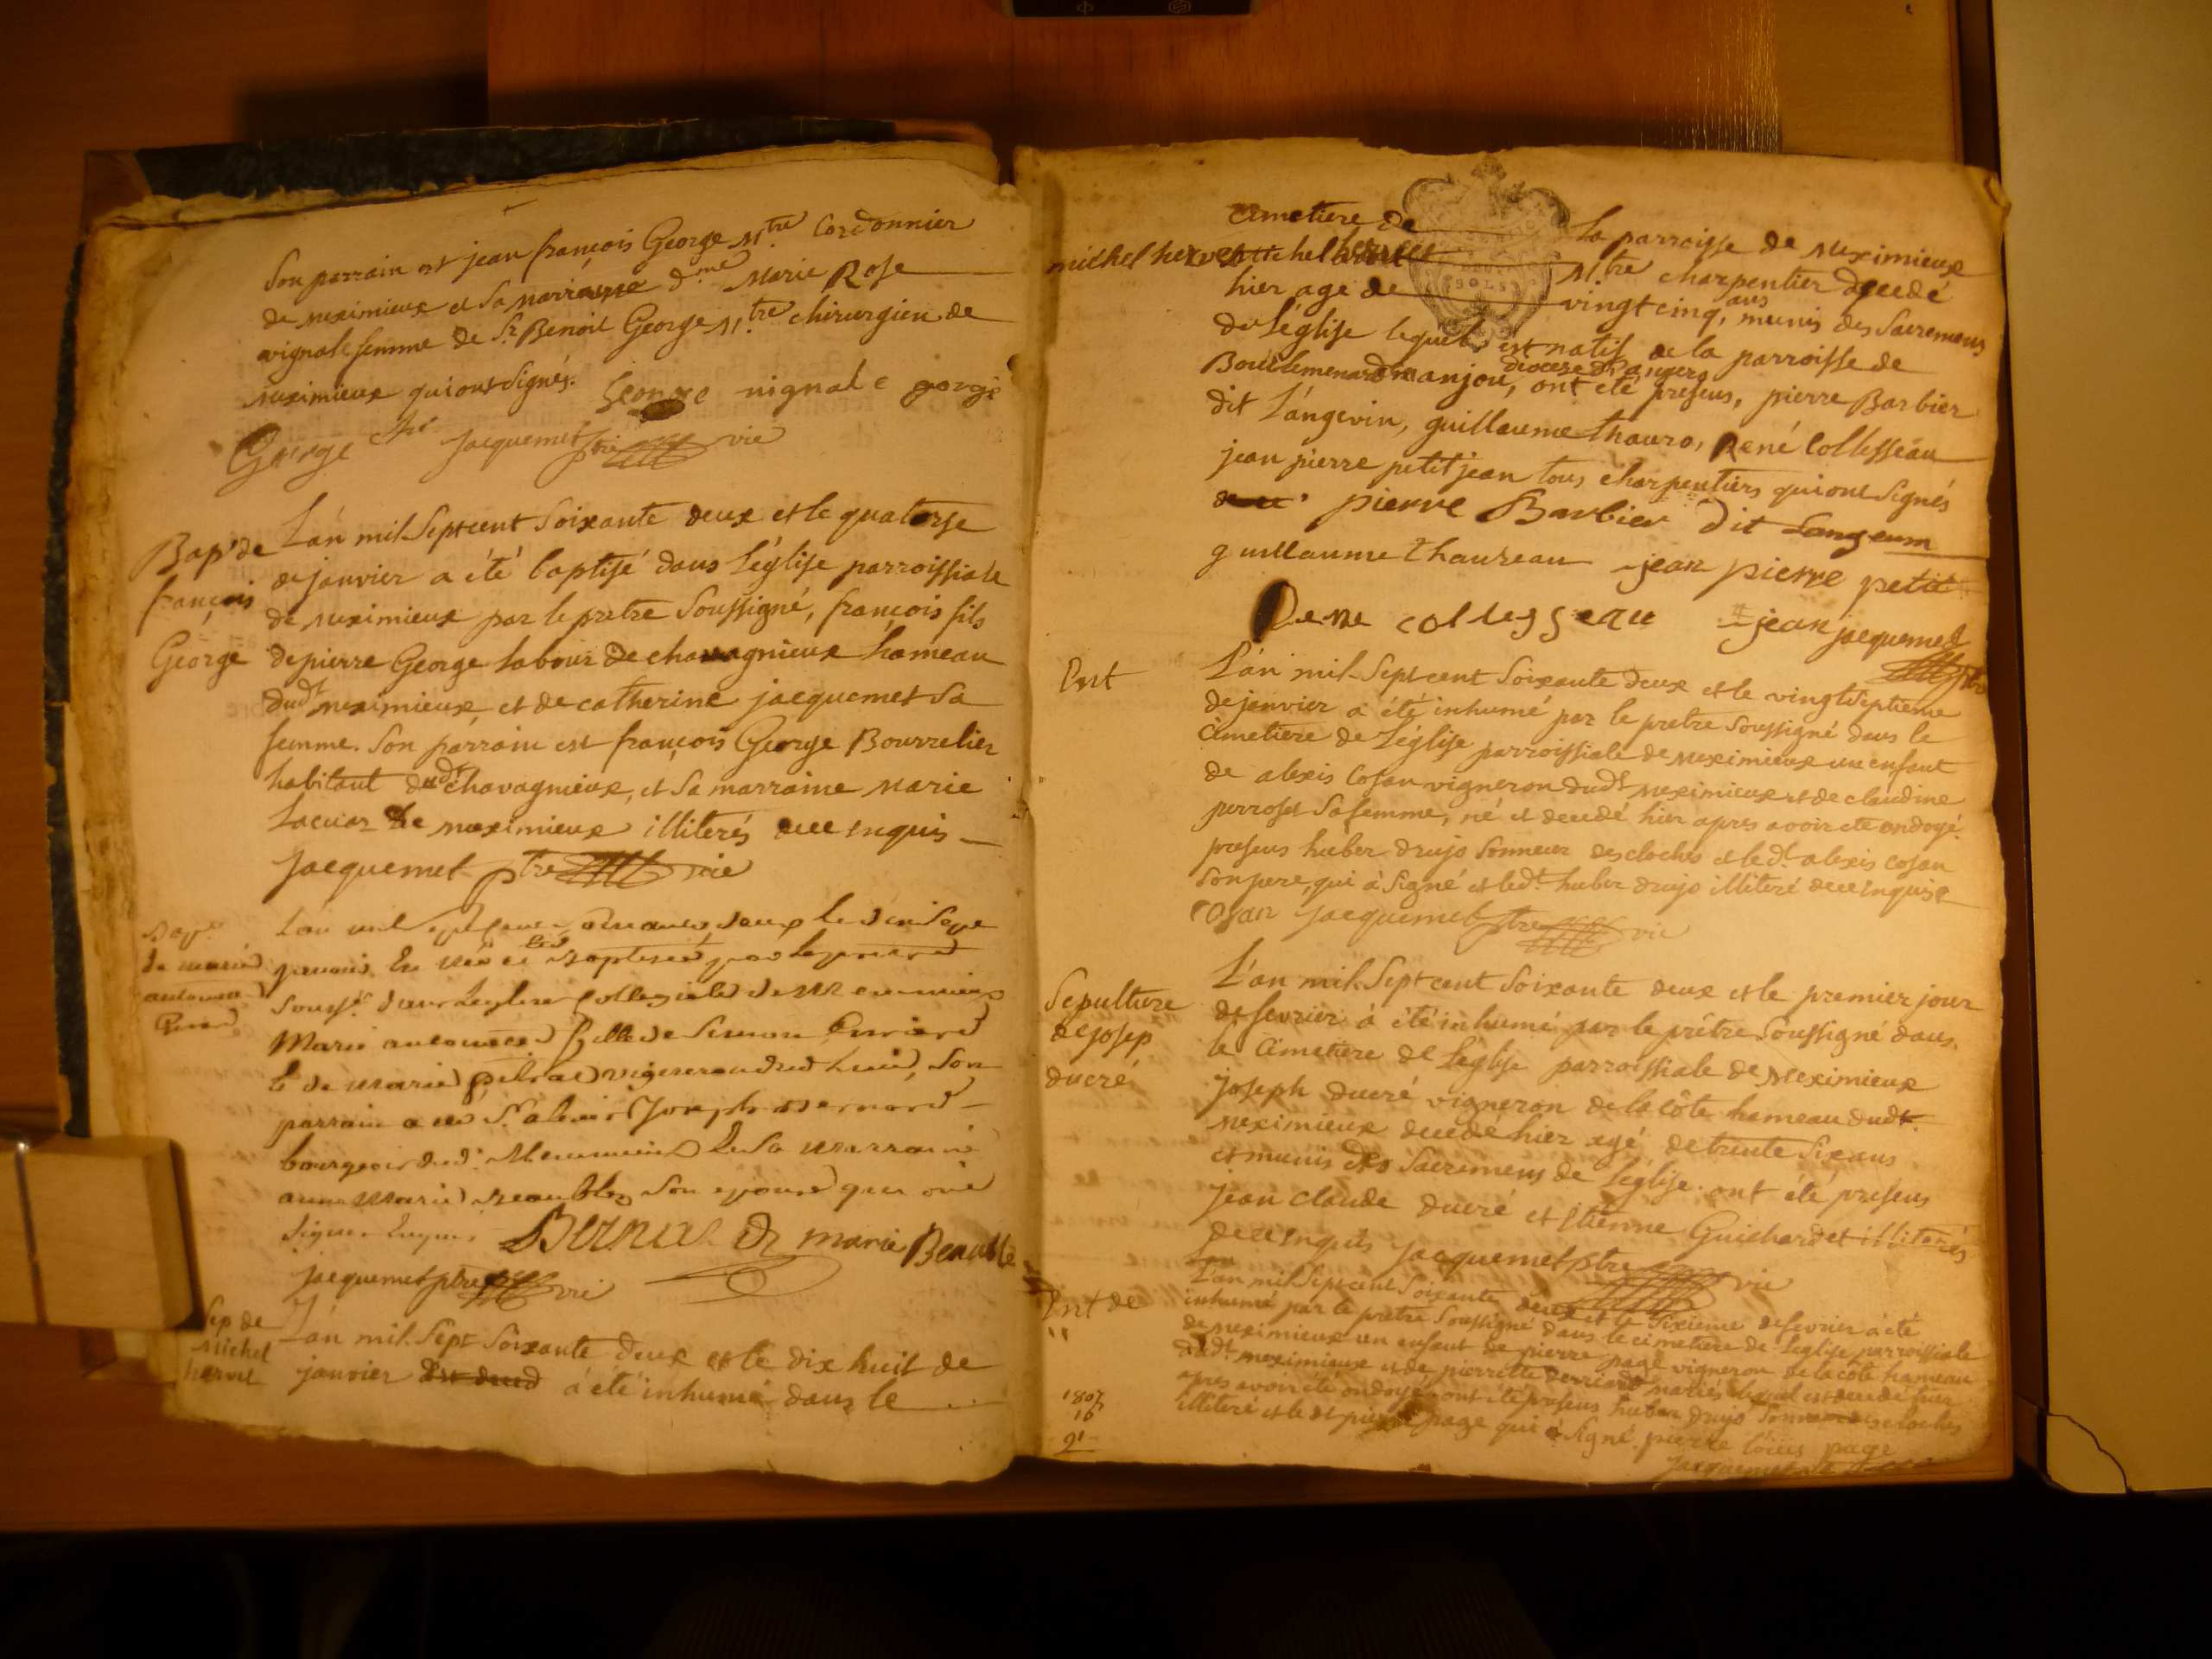 Son parrain est jean françois George M.tre Cordonnier
de meximieux et Sa marraine d.me Marie Rose
vignale femme de S.r Benoit George M.tre chirurgien de
meximieux qui ont Signés. George vignale george
George Jacquemet ptre vic
Bap.e de
françois
George
L'an mil Sept cent Soixante deux et le quatorse
de janvier a été baptisé dans L'église parroissiale
de meximieux par le pretre Soussigné, françois fils
de pierre George labour de chavagnieux hameau
dud.t meximieux, et de catherine jacquemet Sa
femme. Son parrain est françois George Bourrelier
habitant dud.t chavagnieux, et Sa marraine marie
de meximieux illiterés de ce enquis
Jacquemet ptre vic
de marie
L'an mil Sept cent Soixante deux le
janvier Est née et Baptisée par le
Souss.é dans L'eglise Collegiale de
Marie fille de Simon
et de marie vigneron dud. lieu, Son
parrain a été S.r Joseph Bernard
bourgeois dud. Meximieux et Sa marraine
anne Marie Beaublez Son epouse qui ont
Signes Enquis Bernard marie Beauble
jacquemet ptre vic
Sep de
Michel
hervet
L'an mil Sept Soixante deux et le dix huit de
janvier a été inhumé dans le
cimetiere de la parroisse de meximieux
michel hervet M.tre charpentier decedé
hier agé de vingt cinq ans, munis des Sacremens
de L'église lequel est natif de la parroisse de
diocese d'angers
en anjou, ont été presens, pierre Barbier
dit L'angevin, guillaume thauro, René Collesseau
jean pierre petit jean tous charpentiers qui ont Signés
pierre Barbier dit Langevin
guillaume thaureau jean pierre petit
Rene collesseau jean jacquemet
Ent
L'an mil Sept cent Soixante deux et le vingt Septieme
de janvier a été inhumé par le pretre Soussigné dans le
Cimetiere de L'église parroissiale de meximieux un enfant
de alexis Cosan vigneron dud.t meximieux et de claudine
perroset Sa femme, né et decedé hier apres avoir eté ondoyé
presens hueber drujo Sonneur des cloches et led.t alexis Cosan
Son pere, qui à Signé et led.t hueber drujo illiteré de ce enquise
Cosan Jacquemet ptre vic
Sepulture
de josep
ducré
L'an mil Sept cent Soixante deux et le premier jour
de fevrier à été inhumé par le prêtre Soussigné dans
le Cimetiere de L'eglise parroissiale de meximieux
joseph ducré vigneron de la côte hameau dud.t
meximieux decedé hier agé de trente Six ans
et munis des Sacremens de L'église. ont été presens
Jean claude ducré et Etienne Guichardet illiterés
de ce enquis Jacquemet ptre vic
Ent de
"
L'an mil Sept cent Soixante deux et le Sixieme de fevrier a été
inhumé par le pretre Soussigné dans le cimetiere de L'église parroissiale
de meximieux un enfant de pierre page vigneron de la côte hameau
dud.t meximieux et de pierrette mariés lequel est decedé hier
apres avoir été ondoyé, ont été presens hueber drujo Sonneur des cloches
illiteré et le dt pierre page qui à Signé. pierre page
1807
16
21